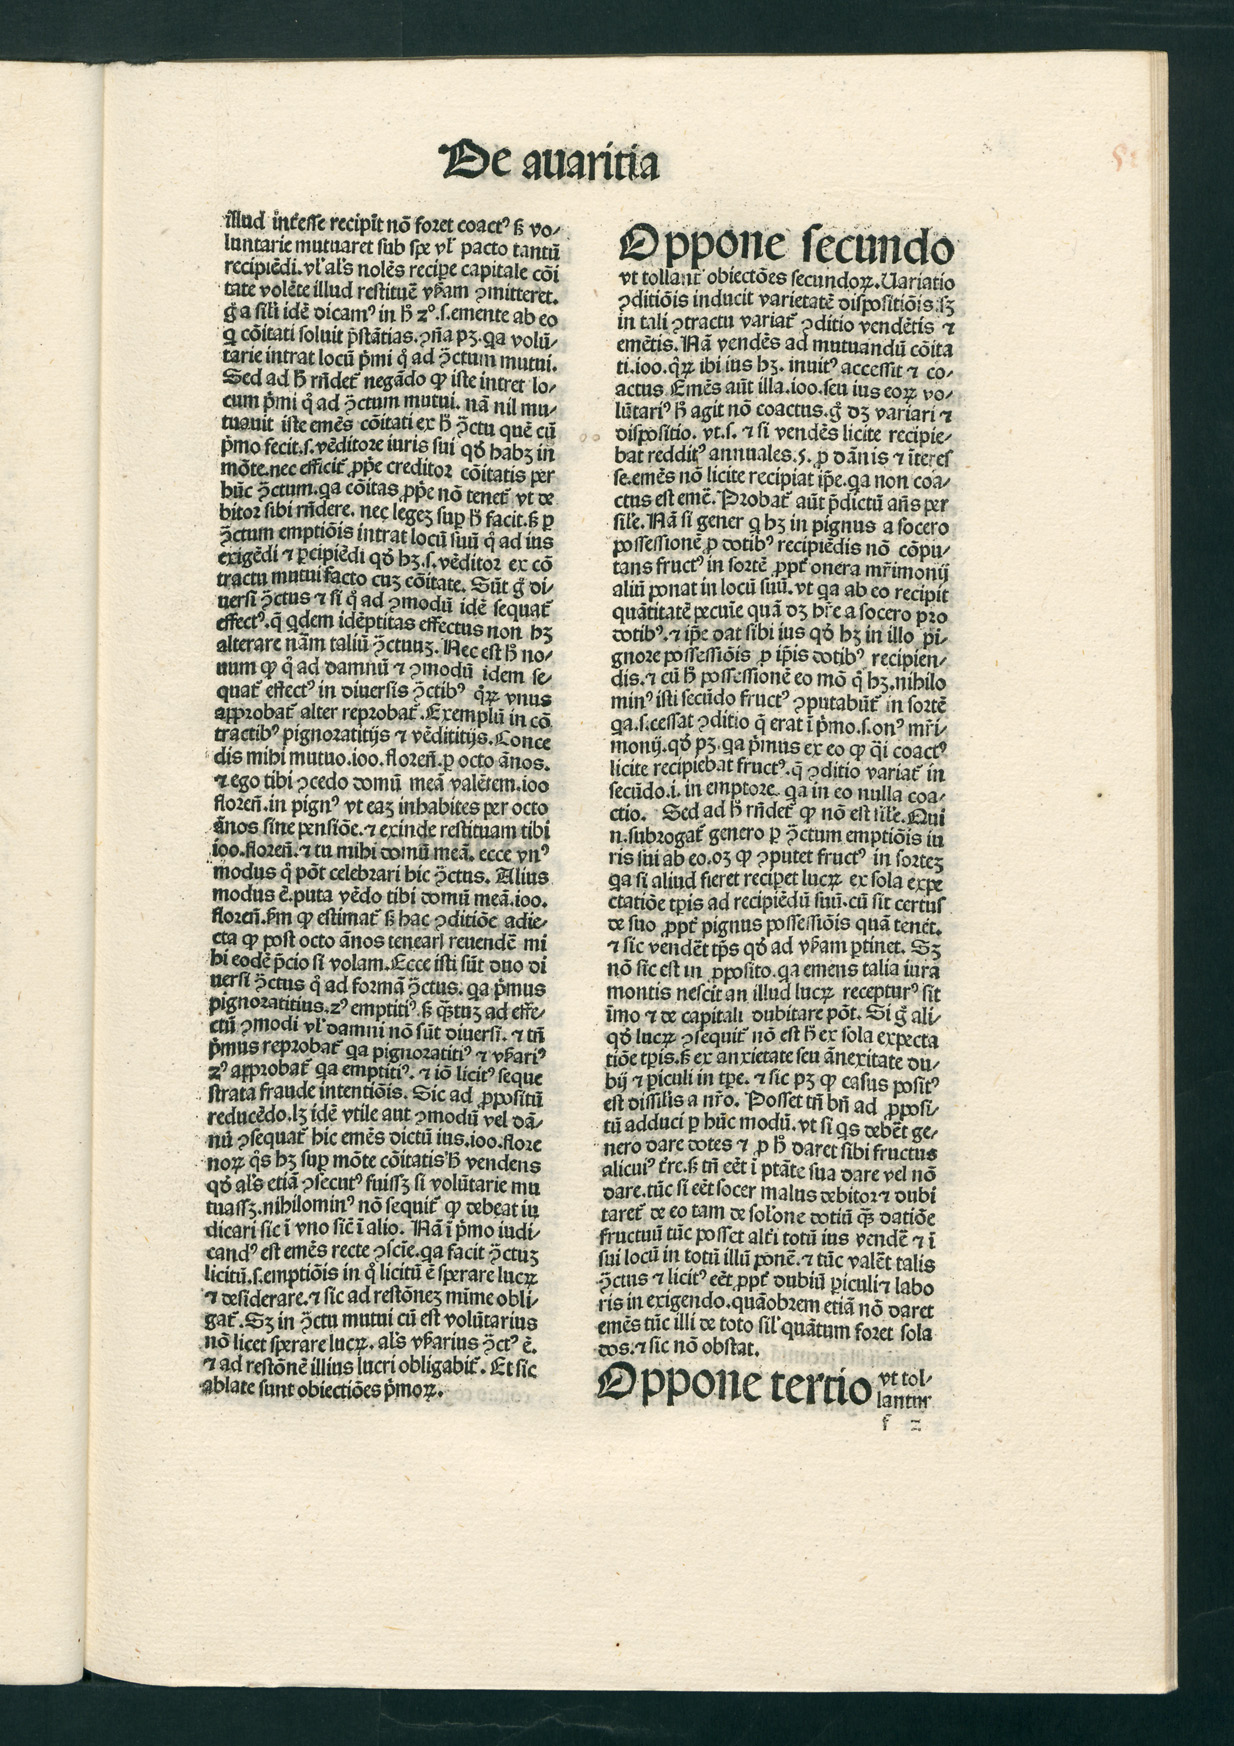 De auaritia
illud int̃esse recipit nõ foret coactꝰ ß vo⸗
luntarie mutuaret sub spe vl̕ pacto tantũ
recipiẽdi. vl̕ al̕s nolẽs recipe capitale cõi
tate volẽte illud restituẽ vẜam ꝯmitteret.
g̊ a sil̕i idẽ dicamꝰ in h̊ 2°. s. emente ab eo
q̇ cõitati soluit p̃stãtias. ꝯña pꝫ. qa volũ⸗
tarie intrat locũ p̃mi q̊ ad ꝯ̃ctum mutui.
Sed ad h̊ rñdet̃ negãdo ꝙ iste intret lo⸗
cum p̃mi q̊ ad ꝯ̃ctum mutui. nã nil mu⸗
tuauit iste emẽs cõitati ex h̊ ꝯ̃ctu quẽ cũ
p̃mo fecit. s. vẽditore iuris sui qđ habꝫ in
mõte. nec efficit̃ ꝓpe creditor cõitatis per
hũc ꝯ̃ctum. qa cõitas ꝓpe nõ tenet̃ vt de
bitor sibi rñdere. nec legeꝫ suꝑ h̊ facit. ß ꝑ
ꝯ̃ctum emptiõis intrat locũ suũ q̊ ad ius
exigẽdi ⁊ ꝑcipiẽdi qđ hꝫ. s. vẽditor ex cõ
tractu mutui facto cuꝫ cõitate. Sũt g̊ di⸗
uersi ꝯ̃ctus ⁊ si q̊ ad ꝯmodũ idẽ sequat̃
effectꝰ. q̃ qdem idẽptitas effectus non hꝫ
alterare nãm taliũ ꝯ̃ctuuꝫ. Nec est h̊ no⸗
uum ꝙ q̊ ad damnũ ⁊ ꝯmodũ idem se⸗
quat̃ effectꝰ in diuersis ꝯ̃ctibꝰ qꝝ vnus
approbat̃ alter reprobat̃. Exemplũ in cõ
tractibꝰ pignoratitijs ⁊ vẽdititijs. Conce
dis mihi mutuo. ioo. floreñ. ꝑ octo ãnos.
⁊ ego tibi ꝯcedo domũ meã valẽtem. ioo
floreñ. in pignꝰ vt eaꝫ inhabites per octo
ãnos sine pensiõe. ⁊ exinde restituam tibi
ioo. floreñ. ⁊ tu mihi domũ meã. ecce vnꝰ
modus q̊ põt celebrari hic ꝯ̃ctus. Alius
modus ẽ. puta vẽdo tibi domũ meã. ioo.
floreñ. ẜm ꝙ estimat̃ ß hac ꝯditiõe adie⸗
cta ꝙ post octo ãnos tenearl reuendẽ mi
hi eodẽ p̃cio si volam. Ecce isti sũt duo di
uersi ꝯ̃ctus q̊ ad formã ꝯ̃ctus. qa p̃mus
pignoratitius. 2ꝰ emptitiꝰ. ß q̃tuꝫ ad effe⸗
ctũ ꝯmodi vl̕ damni nõ sũt diuersi. ⁊ tñ
p̃mus reprobat̃ qa pignoratitiꝰ ⁊ vẜariꝰ
2ꝰ approbat̃ qa emptitiꝰ. ⁊ iõ licitꝰ seque
strata fraude intentiõis. Sic ad ꝓpositũ
reducẽdo. lꝫ idẽ vtile aut ꝯmodũ vel dã⸗
nũ ꝯsequat̃ hic emẽs dictũ ius. ioo. flore
noꝝ q̊s hꝫ suꝑ mõte cõitatis h̊ vendens
qđ al̕s etiã ꝯsecutꝰ fuissꝫ si volũtarie mu
tuassꝫ. nihilominꝰ nõ sequit̃ ꝙ debeat iu
dicari sic ĩ vno sic̃ ĩ alio. Nã ĩ p̃mo iudi⸗
candꝰ est emẽs recte ꝯscĩe. qa facit ꝯ̃ctuꝫ
licitũ. s. emptiõis in q̊ licitũ ẽ sperare lucꝝ
⁊ desiderare. ⁊ sic ad restõneꝫ mĩme obli⸗
gat̃. Sꝫ in ꝯ̃ctu mutui cũ est volũtarius
nõ licet sperare lucꝝ. al̕s vẜarius ꝯ̃ctꝰ ẽ.
⁊ ad restõnẽ illius lucri obligabit̃. Et sic
ablate sunt obiectiões p̃moꝝ.
Oppone secundo
vt tollant̃ obiectões secundoꝝ. Uariatio
ꝯditiõis inducit varietatẽ dispositiõis. sꝫ
in tali ꝯtractu variat̃ ꝯditio vendẽtis ⁊
emẽtis. Nã vendẽs ad mutuandũ cõita
ti. ioo. qꝝ ibi ius hꝫ. inuitꝰ accessit ⁊ co⸗
actus. Emẽs aũt illa. ioo. seu ius eoꝝ vo⸗
lũtariꝰ h̊ agit nõ coactus. g̊ dꝫ variari ⁊
dispositio. vt. s. ⁊ si vendẽs licite recipie⸗
bat redditꝰ annuales. 5. ꝑ dãnis ⁊ ĩteres
se. emẽs nõ licite recipiat ip̃e. qa non coa⸗
ctus est emẽ. Probat̃ aũt p̃dictũ añs per
sil̕e. Nã si gener q̇ hꝫ in pignus a socero
possessionẽ ꝓ dotibꝰ recipiẽdis nõ cõpu⸗
tans fructꝰ in sortẽ ꝓpt̃ onera mr̃imonij
aliũ ponat in locũ suũ. vt qa ab eo recipit
quãtitatẽ pecuĩe quã dꝫ hr̃e a socero pro
dotibꝰ. ⁊ ip̃e dat sibi ius qđ hꝫ in illo pi⸗
gnore possessiõis ꝓ ip̃is dotibꝰ recipien⸗
dis. ⁊ cũ h̊ possessionẽ eo mõ q̊ hꝫ. nihilo
minꝰ isti secũdo fructꝰ ꝯputabũt̃ in sortẽ
qa. s. cessat ꝯditio q̃ erat ĩ p̃mo. s. onꝰ mr̃i⸗
monij. qđ pꝫ. qa p̃mus ex eo ꝙ q̃i coactꝰ
licite recipiebat fructꝰ. q̃ ꝯditio variat̃ in
secũdo. i. in emptore. qa in eo nulla coa⸗
ctio. Sed ad h̊ rñdet̃ ꝙ nõ est sil̕e. Qui
n. subrogat̃ genero ꝑ ꝯ̃ctum emptiõis iu
ris sui ab eo. dꝫ ꝙ ꝯputet fructꝰ in sorteꝫ
qa si aliud fieret recipet lucꝝ ex sola expe
ctatiõe tꝑis ad recipiẽdũ suũ. cũ sit certus
de suo ꝓpt̃ pignus possessiõis quã tenet.
⁊ sic vendẽt tꝑs qđ ad vẜam ꝑtinet. Sꝫ
nõ sic est in ꝓposito. qa emens talia iura
montis nescit an illud lucꝝ recepturꝰ sit
ĩmo ⁊ de capitali dubitare põt. Si g̊ ali⸗
qđ lucꝝ ꝯsequit̃ nõ est h̊ ex sola expecta
tiõe tꝑis. ß ex anxietate seu ãnexitate du⸗
bij ⁊ ꝑiculi in tꝑe. ⁊ sic pꝫ ꝙ casus positꝰ
est dissil̕is a nr̃o. Posset tñ bñ ad ꝓposi⸗
tũ adduci ꝑ hũc modũ. vt si qs debẽt ge⸗
nero dare dotes ⁊ ꝓ h̊ daret sibi fructus
alicuiꝰ t̃re. ß tñ eẽt ĩ ptãte sua dare vel nõ
dare. tũc si eẽt socer malus debitor ⁊ dubi
taret̃ de eo tam de sol̕one dotiũ q̃ datiõe
fructuũ tũc posset alt̃i totũ ius vendẽ ⁊ ĩ
sui locũ in totũ illũ ponẽ. ⁊ tũc valẽt talis
ꝯ̃ctus ⁊ licitꝰ eẽt ꝓpt̃ dubiũ ꝑiculi ⁊ labo
ris in exigendo. quãobrem etiã nõ daret
emẽs tũc illi de toto sil̕ quãtum foret sola
dos. ⁊ sic nõ obstat.
Oppone tertio vt tol⸗
lantur
f 2